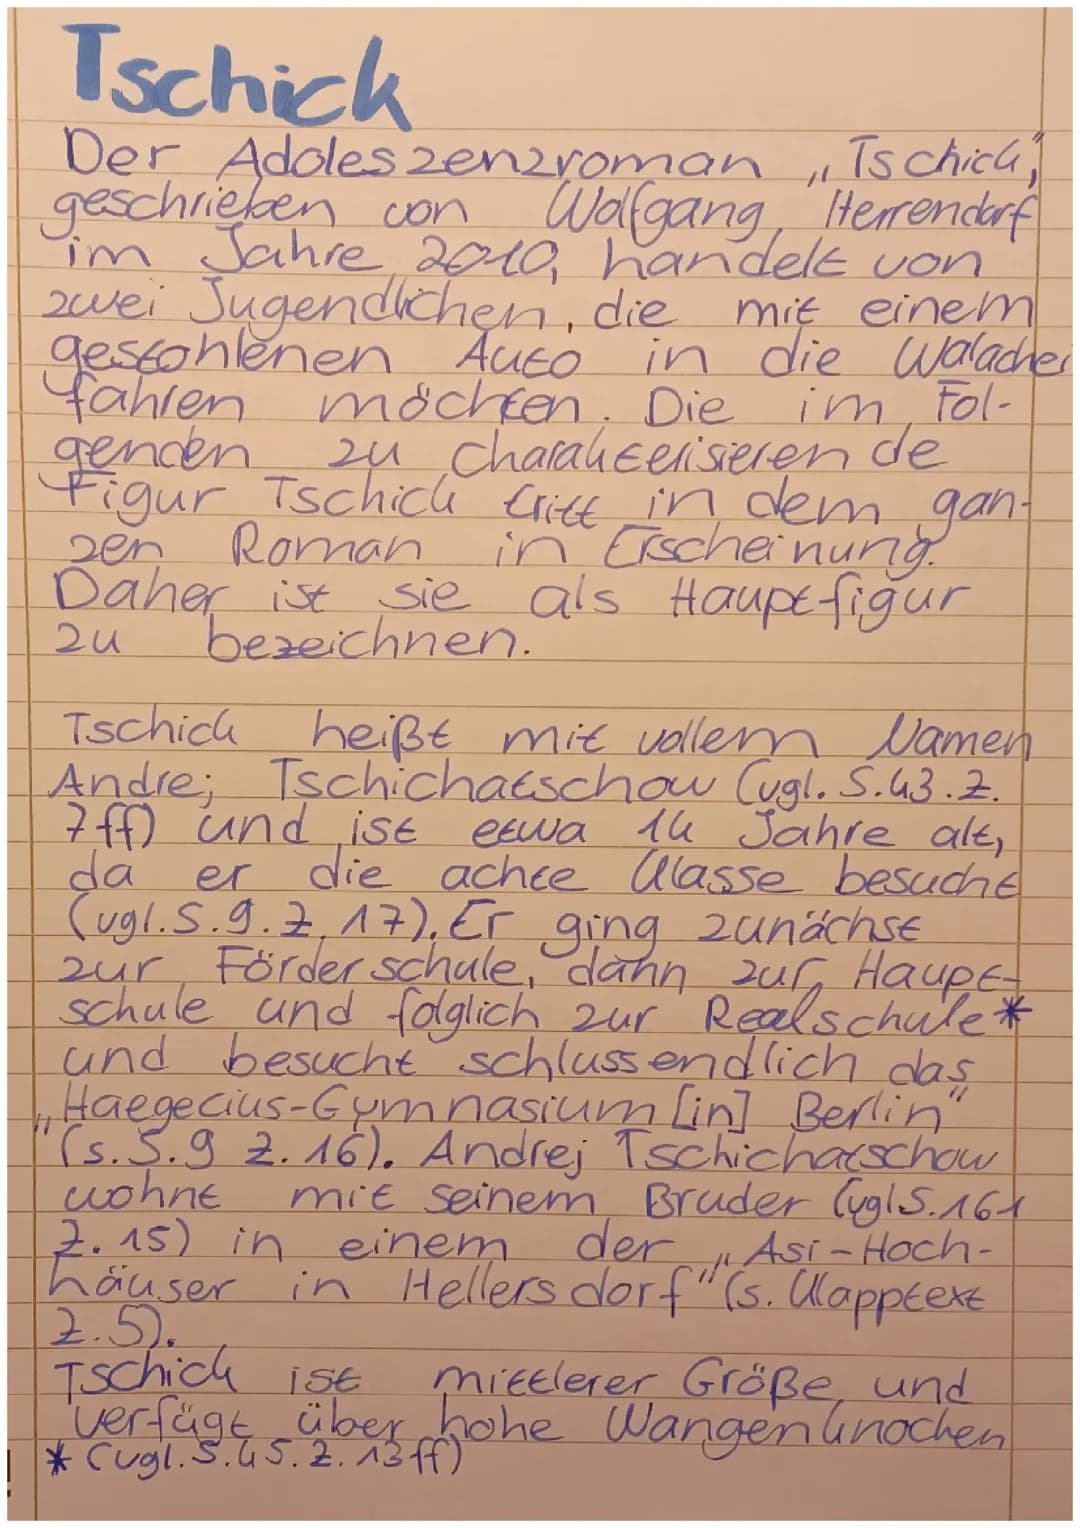 Tschick
Der Adoleszenzroman „Tschick",
geschrieben von Wolfgang Herrendorf
im Jahre 2010, handelt von
zwei Jugendlichen, die mit einem
gestohlenen Auto in die Walachei
fahren möchten. Die im Fol-
genden zu charakterisierende
Figur Tschick tritt in dem gan-
zen Roman in Erscheinung.
Daher ist sie als Hauptfigur
zu bezeichnen.
Tschick heißt mit vollem Namen
Andrej Tschichatschow (vgl. S.43.Z.
7ff) und ist etwa 14 Jahre alt,
da er die achte Klasse besucht
(vgl.S.9.Z.17). Er ging zunächst
zur Förderschule, dann zur Haupt-
schule und folglich zur Realschule*
und besucht schlussendlich das
„Haegecius-Gymnasium [in] Berlin"
(s.S.9 Z.16). Andrej Tschichatschow
wohnt mit seinem Bruder (vgl.S.161
Z.15) in einem der „Asi-Hoch-
häuser in Hellersdorf" (s. Klapptext
Z.5).
Tschick ist mittlerer Größe und
verfügt über hohe Wangenknochen
! * (vgl.S.45.Z.13ff)